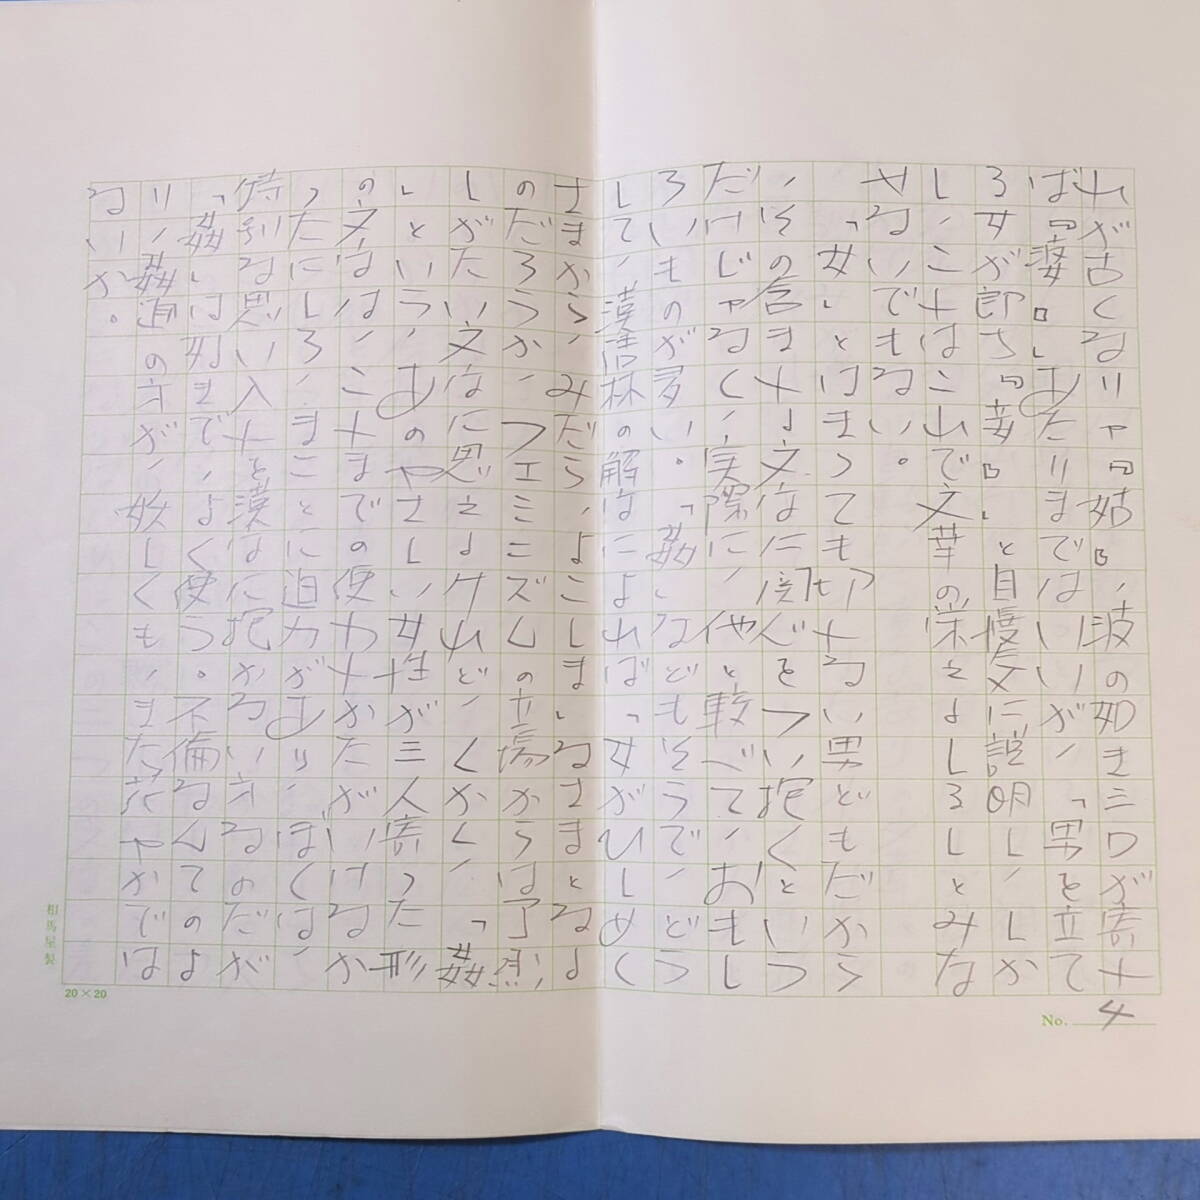 れが古くなりャ『姑』、波の如きシワが寄す
ば『婆』」あたりまではいいが、「男を立て
る女が郎さ と自慢気に説明し、しか
し、これはこれで文華の栄えよしろしとみな
せないでもない。
「女」とはまつても れない男どもだから
、その含まれる文字に をつい抱くといつ
だけじゃなく、実際に、他と較べて、おもし
ろいものが多い。「姦」などもそうで、どう
して、漢語林の解字によれば「女がひしめく
さまから、みだら、よこしま」なさまとなる
のだろうか、フェミニズムの立場からは了
しがたい文字に思えるけれど、とかく、「姦
」という、あのやさしい女性が三人寄った形
の文字は、これまでの使われかたがいけなか
ったにしろ、まことに迫力があり、ぼくは、
特別な思い入れを漢字に抱かない方なのだが
「姦」は別まで、よく使う。不倫なんてのよ
り、姦通の方が、妖しくも、また花やかでは
ないか。
No. 4
20×20
相馬屋製